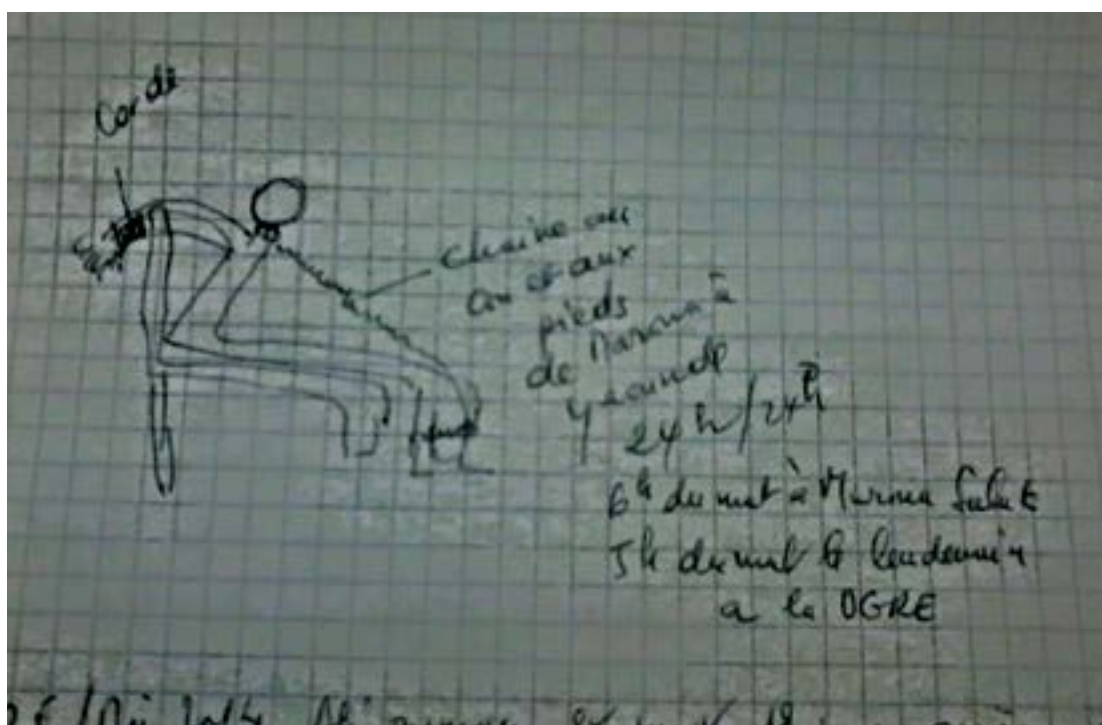 Corde
chaine au
cou et aux
pieds
de Maroua à
Yaoundé
24h/24h
6h du mat à Maroua Salak
5h du mat le lendemain
a la DGRE